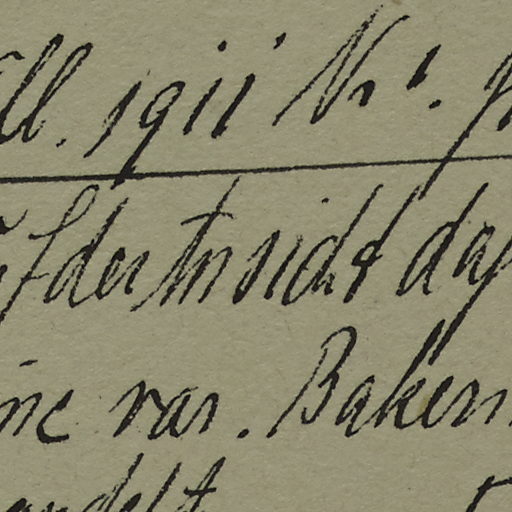 ll. 1911 Nr 1.
f der Ansicht daß
ine var. Baken
andelt